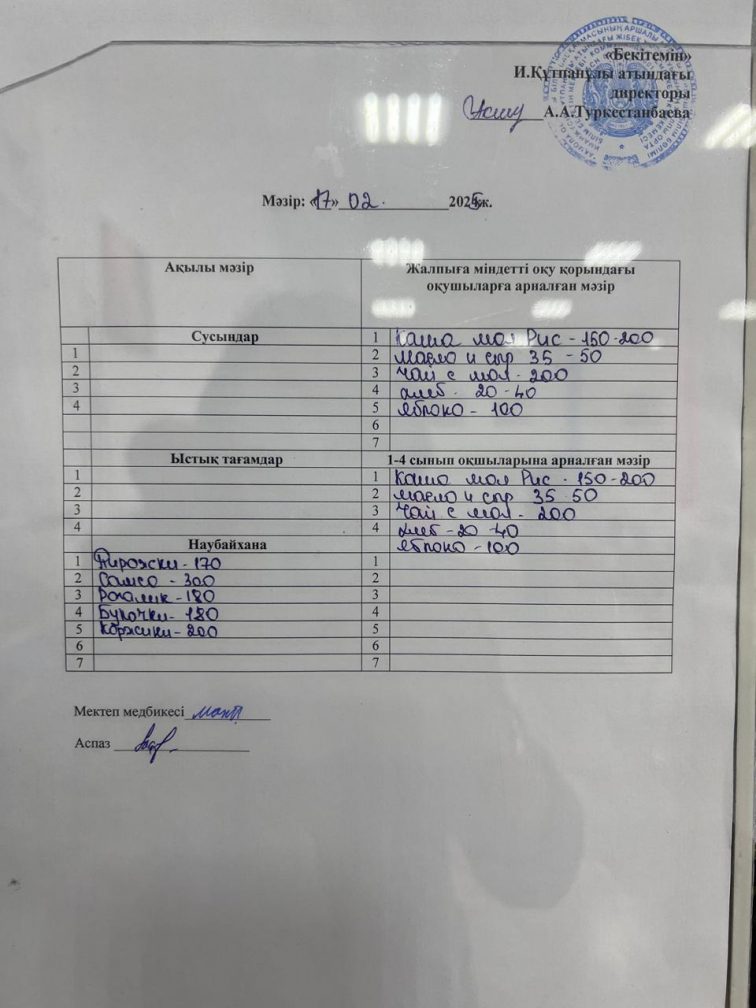 «Бекітемін»
И.Құтпанұлы атындағы
директоры
А.А.Туркестанбаева
Мәзір: «17» 02. 2025ж.
Ақылы мәзір
Жалпыға міндетті оқу қорындағы
оқушыларға арналған мәзір
Сусындар
1 Каша мол Рис - 150-200
1
2 масло и сыр 35 - 50
2
3 Чай с мол - 200
3
4 хлеб - 20-40
4
5 яблоко - 100
6
7
Ыстық тағамдар
1-4 сынып оқшыларына арналған мәзір
1
1 Каша мол Рис - 150-200
2
2 масло и сыр 35 50
3
3 Чай с мол - 200
4
4 хлеб - 20-40
Наубайхана
яблоко - 100
1 Пирожки - 170
1
2 Самса - 300
2
3 Рогалик - 180
3
4 Булочки - 180
4
5 Коржики - 200
5
6
6
7
7
Мектеп медбикесі
Аспаз